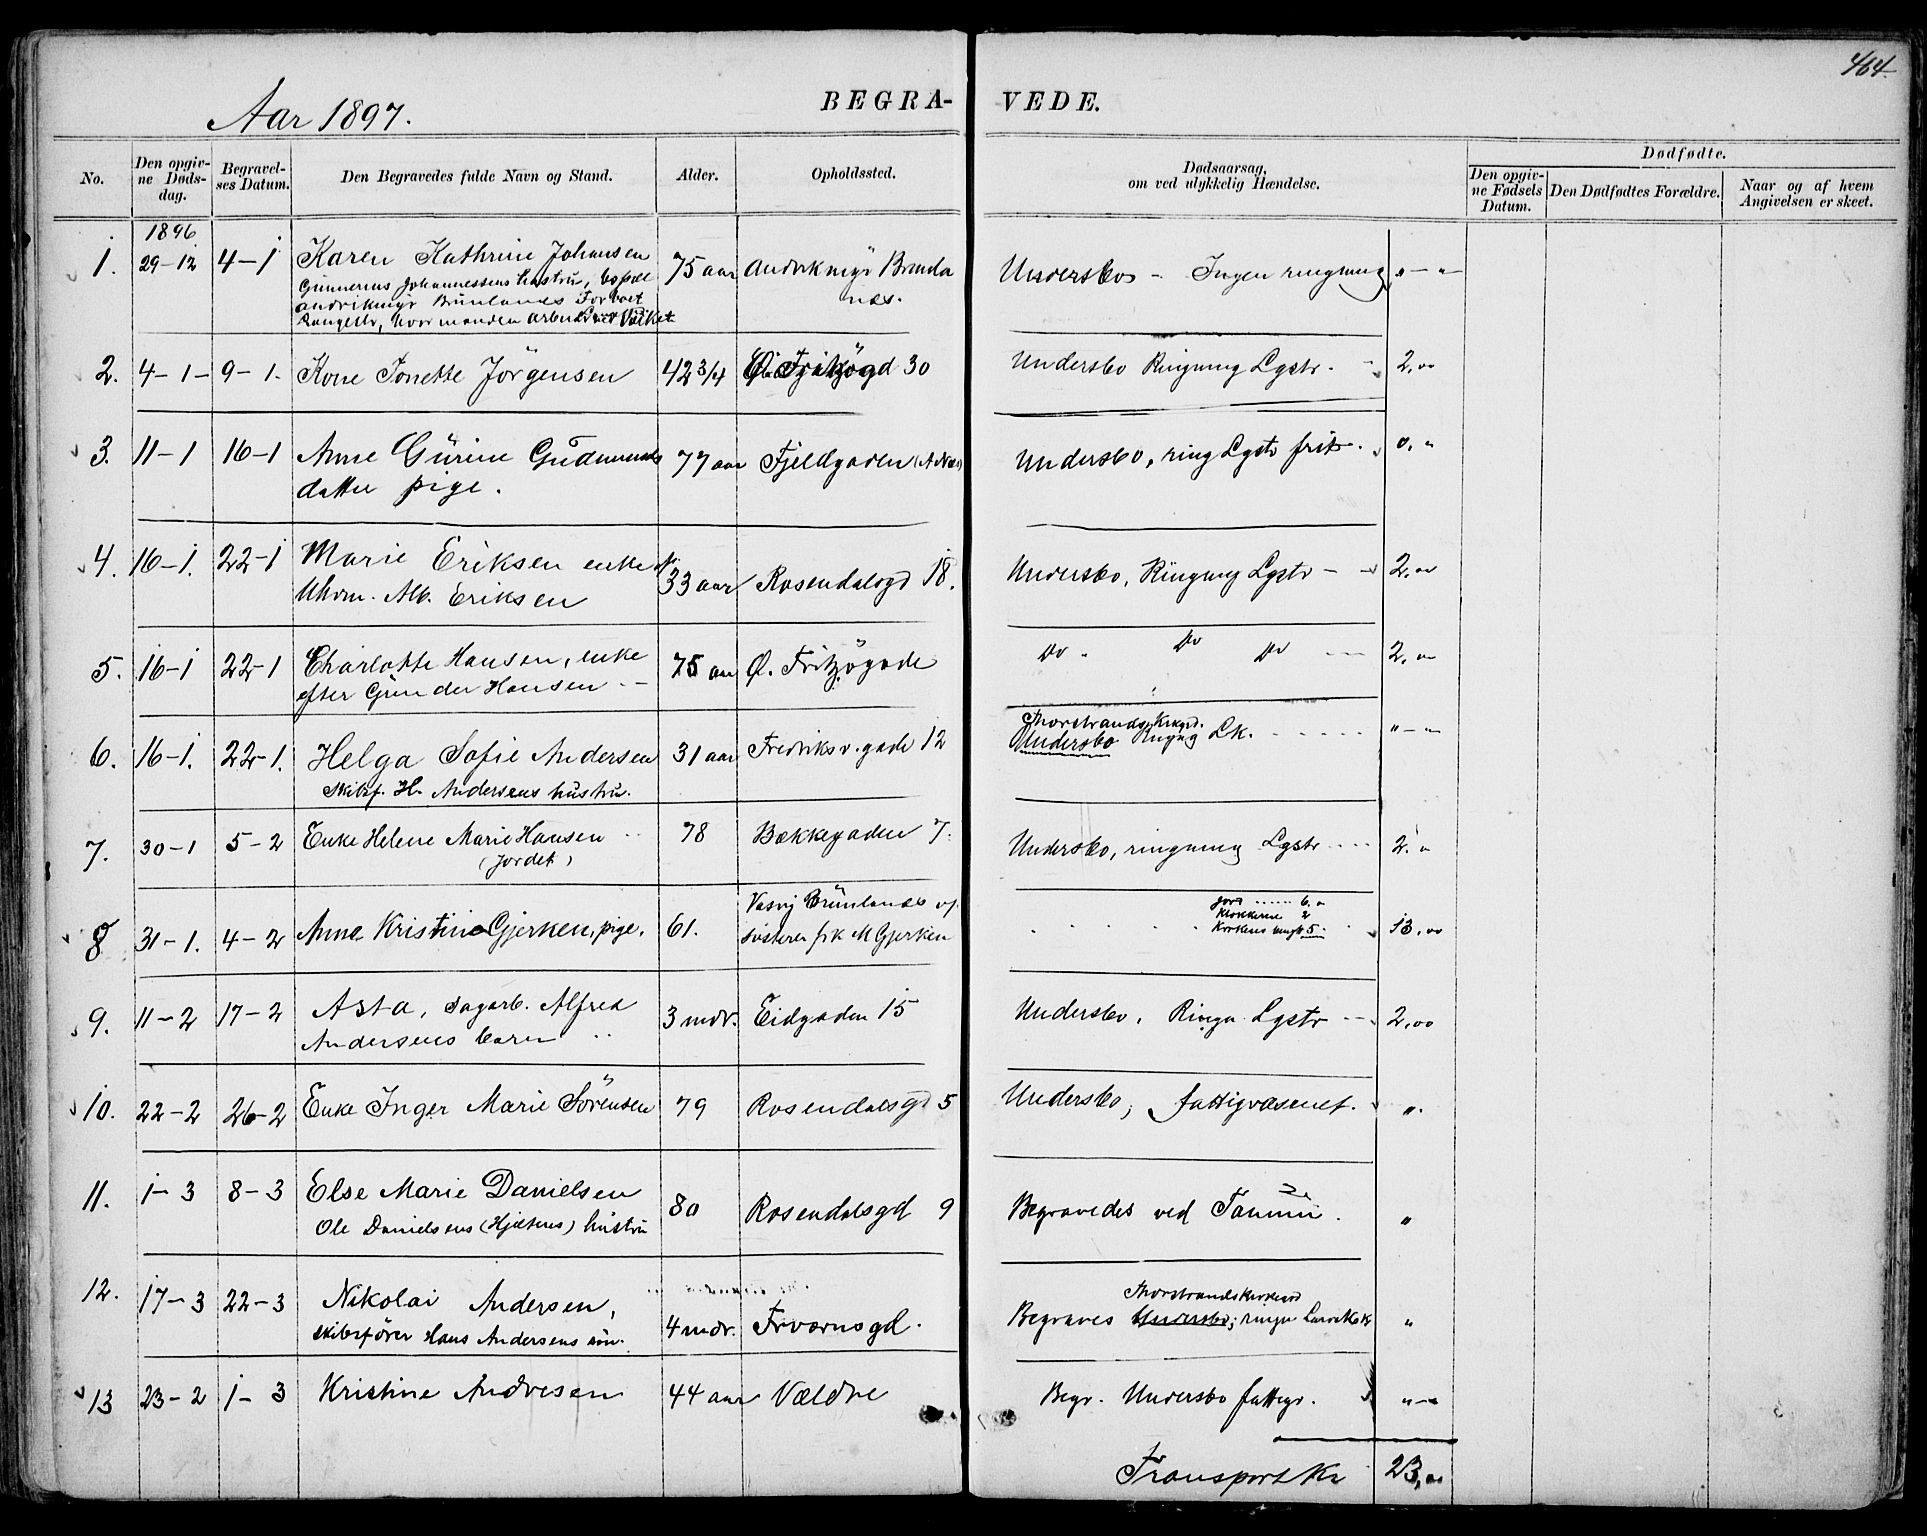 464.
Aar 1897.
BEGRA- VEDE.
No.
Den opgiv-
ne Døds-
dag.
Begravel-
ses Datum.
Den Begravedes fulde Navn og Stand.
Alder.
Opholdssted.
Dødsaarsag,
om ved ulykkelig Hændelse.
Dødfødte.
Den opgiv-
ne Fødsels
Datum.
Den Dødfødtes Forældre.
Naar og af hvem
Angivelsen er skeet.
1896
1. 29-12 4-1 Karen Kathrine Johansen 75 aar Undersbo - Ingen ringning "-"
Gunnerius Johannessens hustru,
2. 4-1- 9-1. Jonette Jörgensen 42 3/4 Fritzögd 30 Undersbo Ringning Lgstr. - 2,00
3. 11-1 16-1 Anne Gurine Gudmunds 77 aar Fjeldgaden Undersbo, ring Lgstr frit. 0,"
datter pige.
4. 16-1. 22-1 Marie Eriksen enke 33 aar Rosendalsgd 18. Undersbo, Ringning Lgstr - 2,00
Alb. Eriksen
5. 16-1 22-1 Charlotte Hansen, enke 75 aar Ø. Fritzögade Do. Do Do 2,00
efter Gunder Hansen
6. 16-1. 22-1. Helga Sofie Andersen 31 aar Fredriksv.gade 12 Thorstrands Kirkgd. "-"
Undersbo Ringng Lk.
Skibsf. H. Andersens hustru.
7. 30-1 5-2 Enke Helene Marie Hansen 78 Bækkegaden 7. Undersbo, ringning Lgstr 2."
(Jordet)
8 31-1. 4-2 Anna Kristine Gjerken, pige. 61. 13,00
Jord 6."
Klokkerne 2
5.
søsteren frk M Gjerken
9. 11-2 17-2 Asta, sagarb. Alfred 3 mdr. Eidgaden 15 Undersbo. Ringn Lgstr 2,00
Andersens barn
10. 22-2 26-2 Enke Inger Marie Sörensen 79 Rosendalsgd 5 Undersbo; fattigvæsenet. ".
11. 1-3 8-3 Else Marie Danielsen 80 Rosendalsgd 9 Begravedes ved Tanum. "
Ole Danielsens hustru
12. 17-3 22-3 Nikolai Andersen, 4 mdr. Frværnsgd. "
Thorstrandskirkegd
Begraves Undersbo; ringn
skibsförer Hans Andersens sön.
13 23-2 1-3 Kristine Andresen 44 aar Vældre Begr. Undersbo fattigv. "-"
Transport Kr 23,00